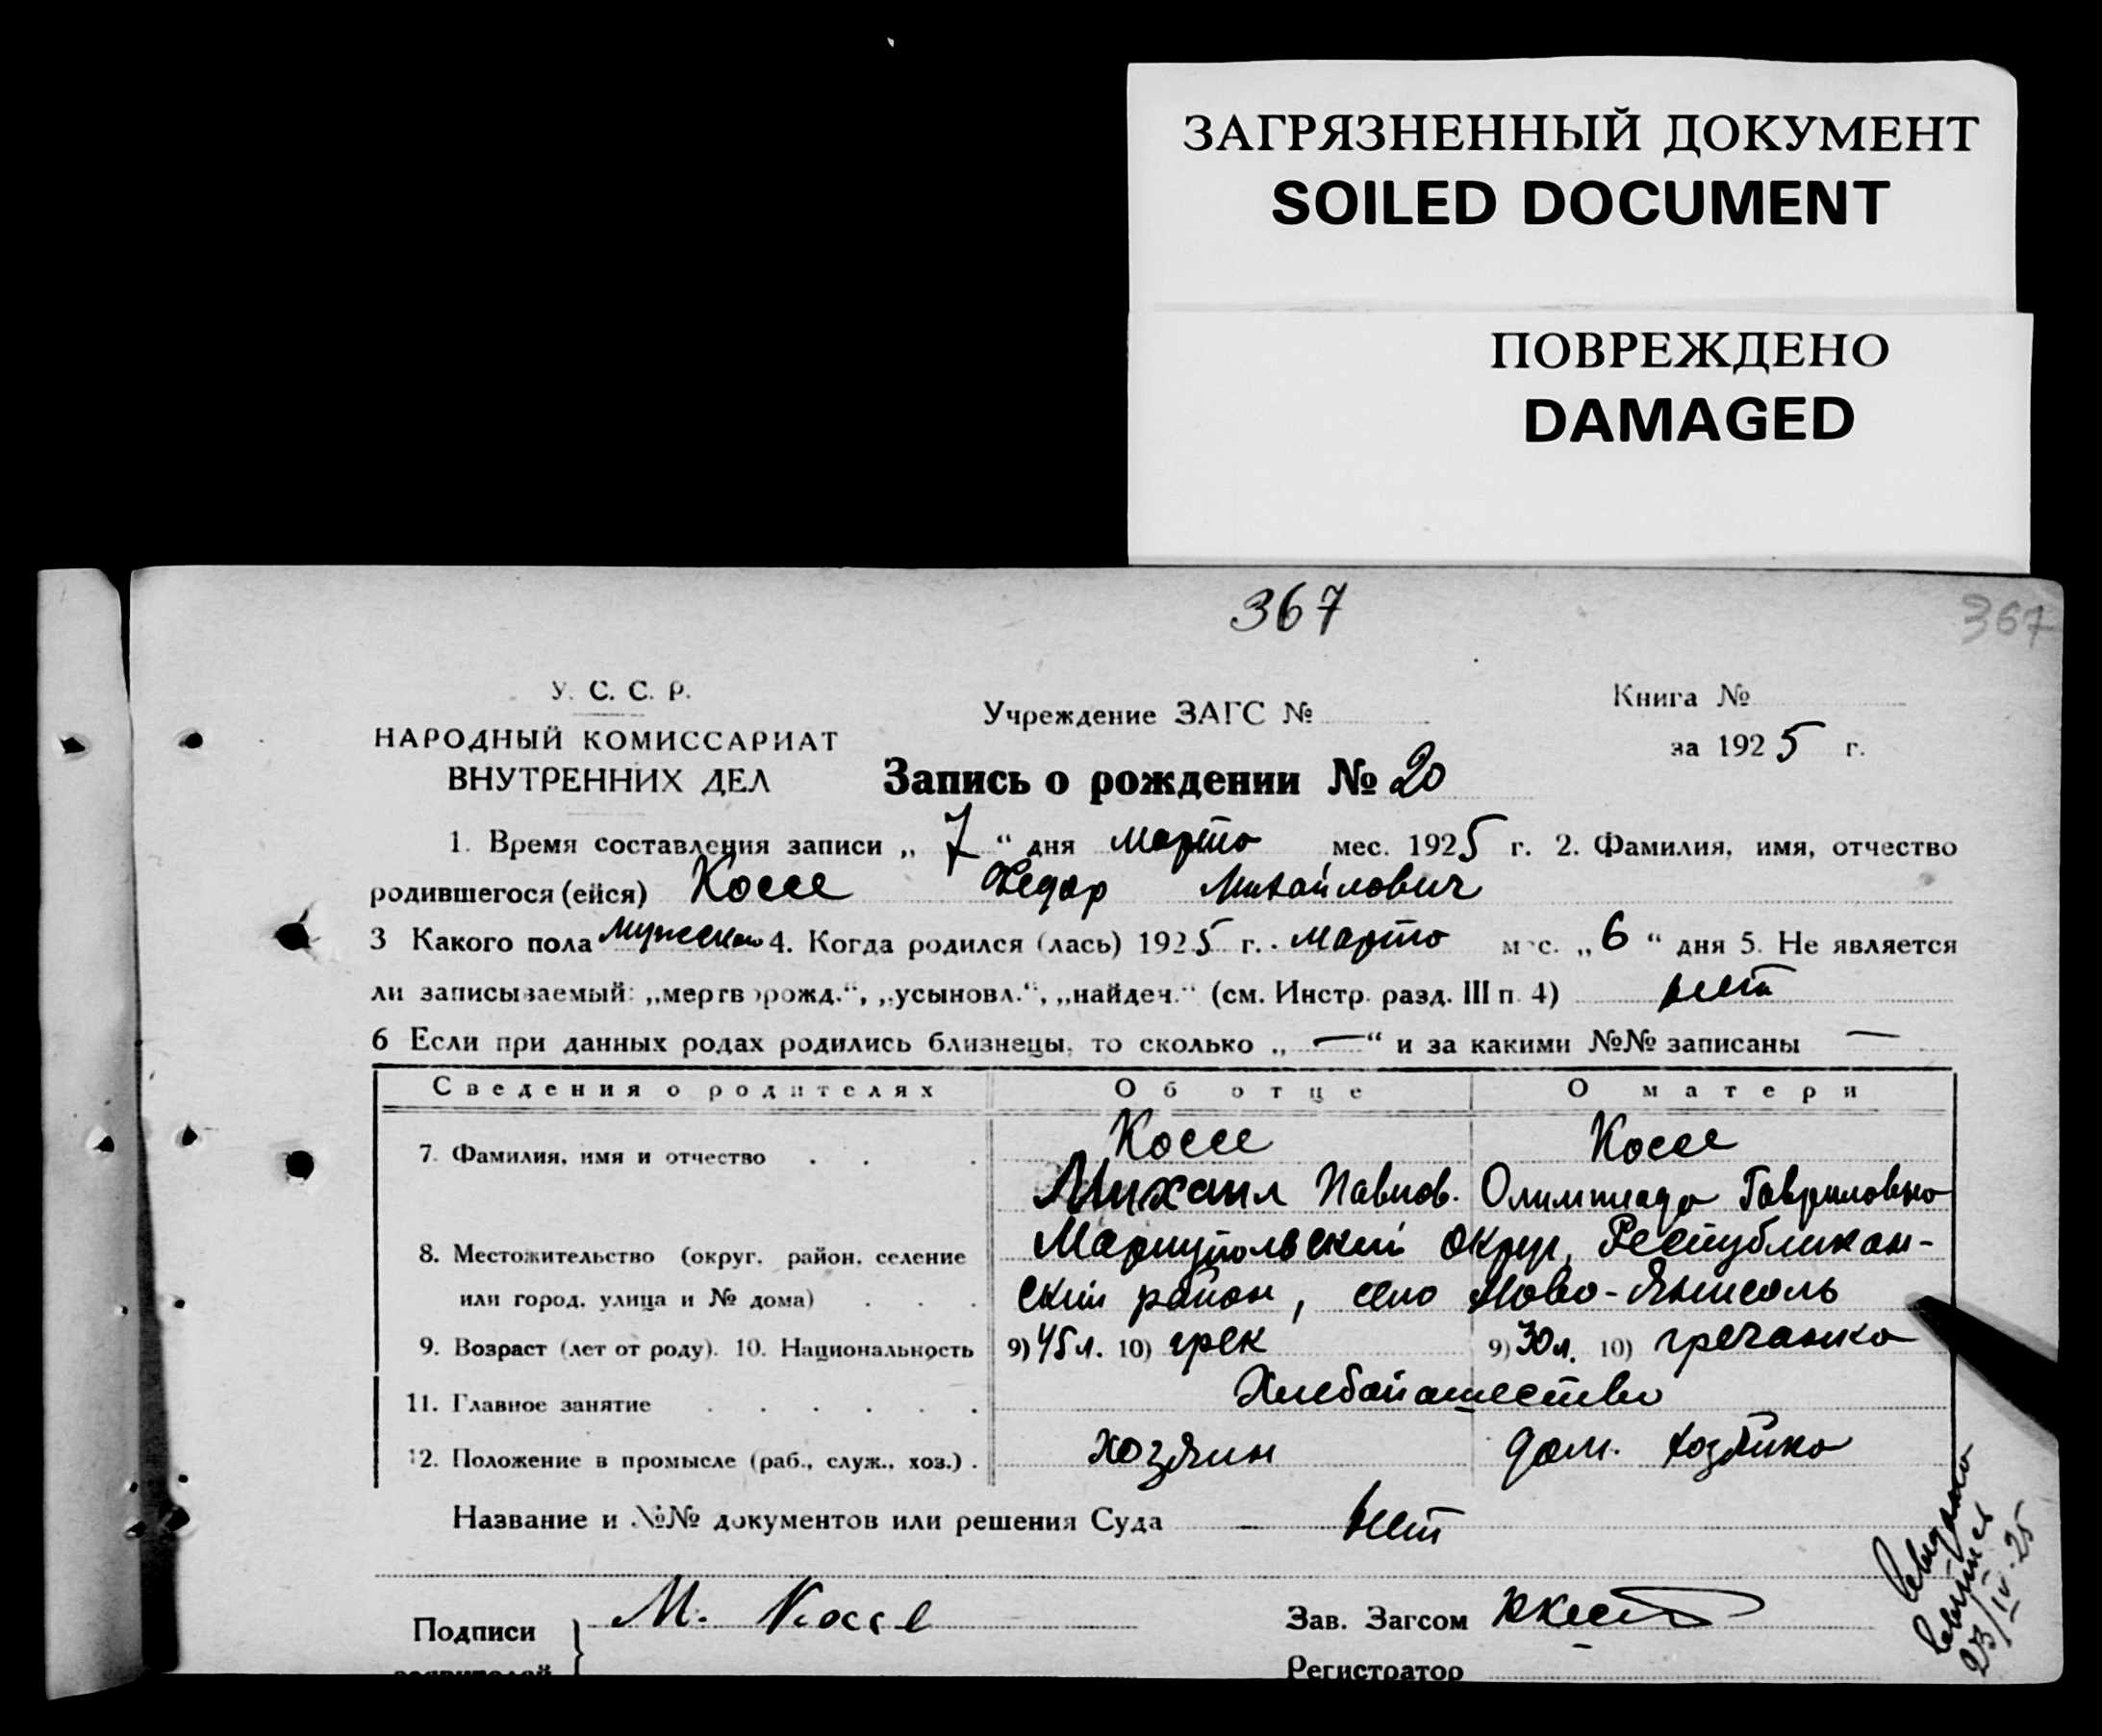 ЗАГРЯЗНЕННЫЙ ДОКУМЕНТ
SOILED DOCUMENT
ПОВРЕЖДЕНО
DAMAGED
367
367
У. С. С. Р.
НАРОДНЫЙ КОМИССАРИАТ
ВНУТРЕННИХ ДЕЛ
Учреждение ЗАГС №
Книга №
за 1925 г.
Запись о рождении № 20
1. Время составления записи „7“ дня марта мес. 1925 г. 2. Фамилия, имя, отчество
родившегося (ейся) Коссе Федор Михайлович
3 Какого пола мужского 4. Когда родился (лась) 1925 г. марта мес. „6“ дня 5. Не является
ли записываемый: „мертворожд.“, „усыновл.“, „найден.“ (см. Инстр. разд. III п. 4) нет
6 Если при данных родах родились близнецы, то сколько „—“ и за какими №№ записаны —
Сведения о родителях Об отце О матери
7. Фамилия, имя и отчество . . . Коссе Коссе
Михаил Павлов. Олимпиада Гавриловна
8. Местожительство (округ, район, селение Мариупольский округ, Республикан-
или город, улица и № дома) . . . ский район, село Ново-Янисоль
9. Возраст (лет от роду). 10. Национальность 9) 45 л. 10) грек 9) 30 л. 10) гречанка
11. Главное занятие . . . . . . Хлебопашество
12. Положение в промысле (раб., служ., хоз.) . хозяин дом. хозяйка
Название и №№ документов или решения Суда — нет
Подписи М. Коссе
заявителей
Зав. Загсом
Регистратор
23/IV-25